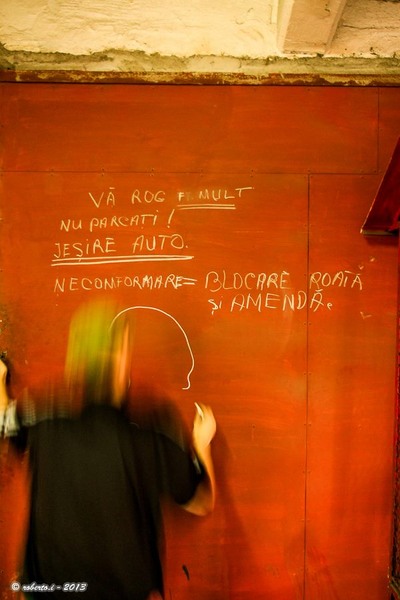 VĂ ROG FF. MULT
NU PARCAȚI!
JEȘIRE AUTO.
NECONFORMARE = BLOCARE ROATĂ
ȘI AMENDĂ.
© roberto.i - 2013